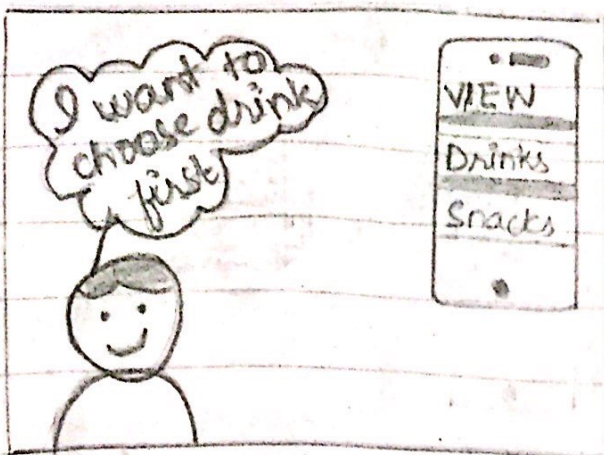 I want to
choose drink
first
VIEW
Drinks
Snacks